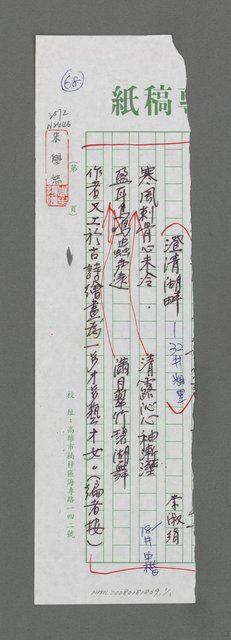 68
專稿紙
澄清湖畔 32井楷黑
李淑須
寒風刺骨心未冷 清露沁心袖漸溼
盈耳鳥鳴蟲亦遠 滿目翠竹碧湖舞
18井中楷
作者又工於古詩繪畫為一多才多藝才女。(編者按)
(第 頁)
朱學恕
校址:高雄市楠梓區海專路一四二號
NMTL20080181809